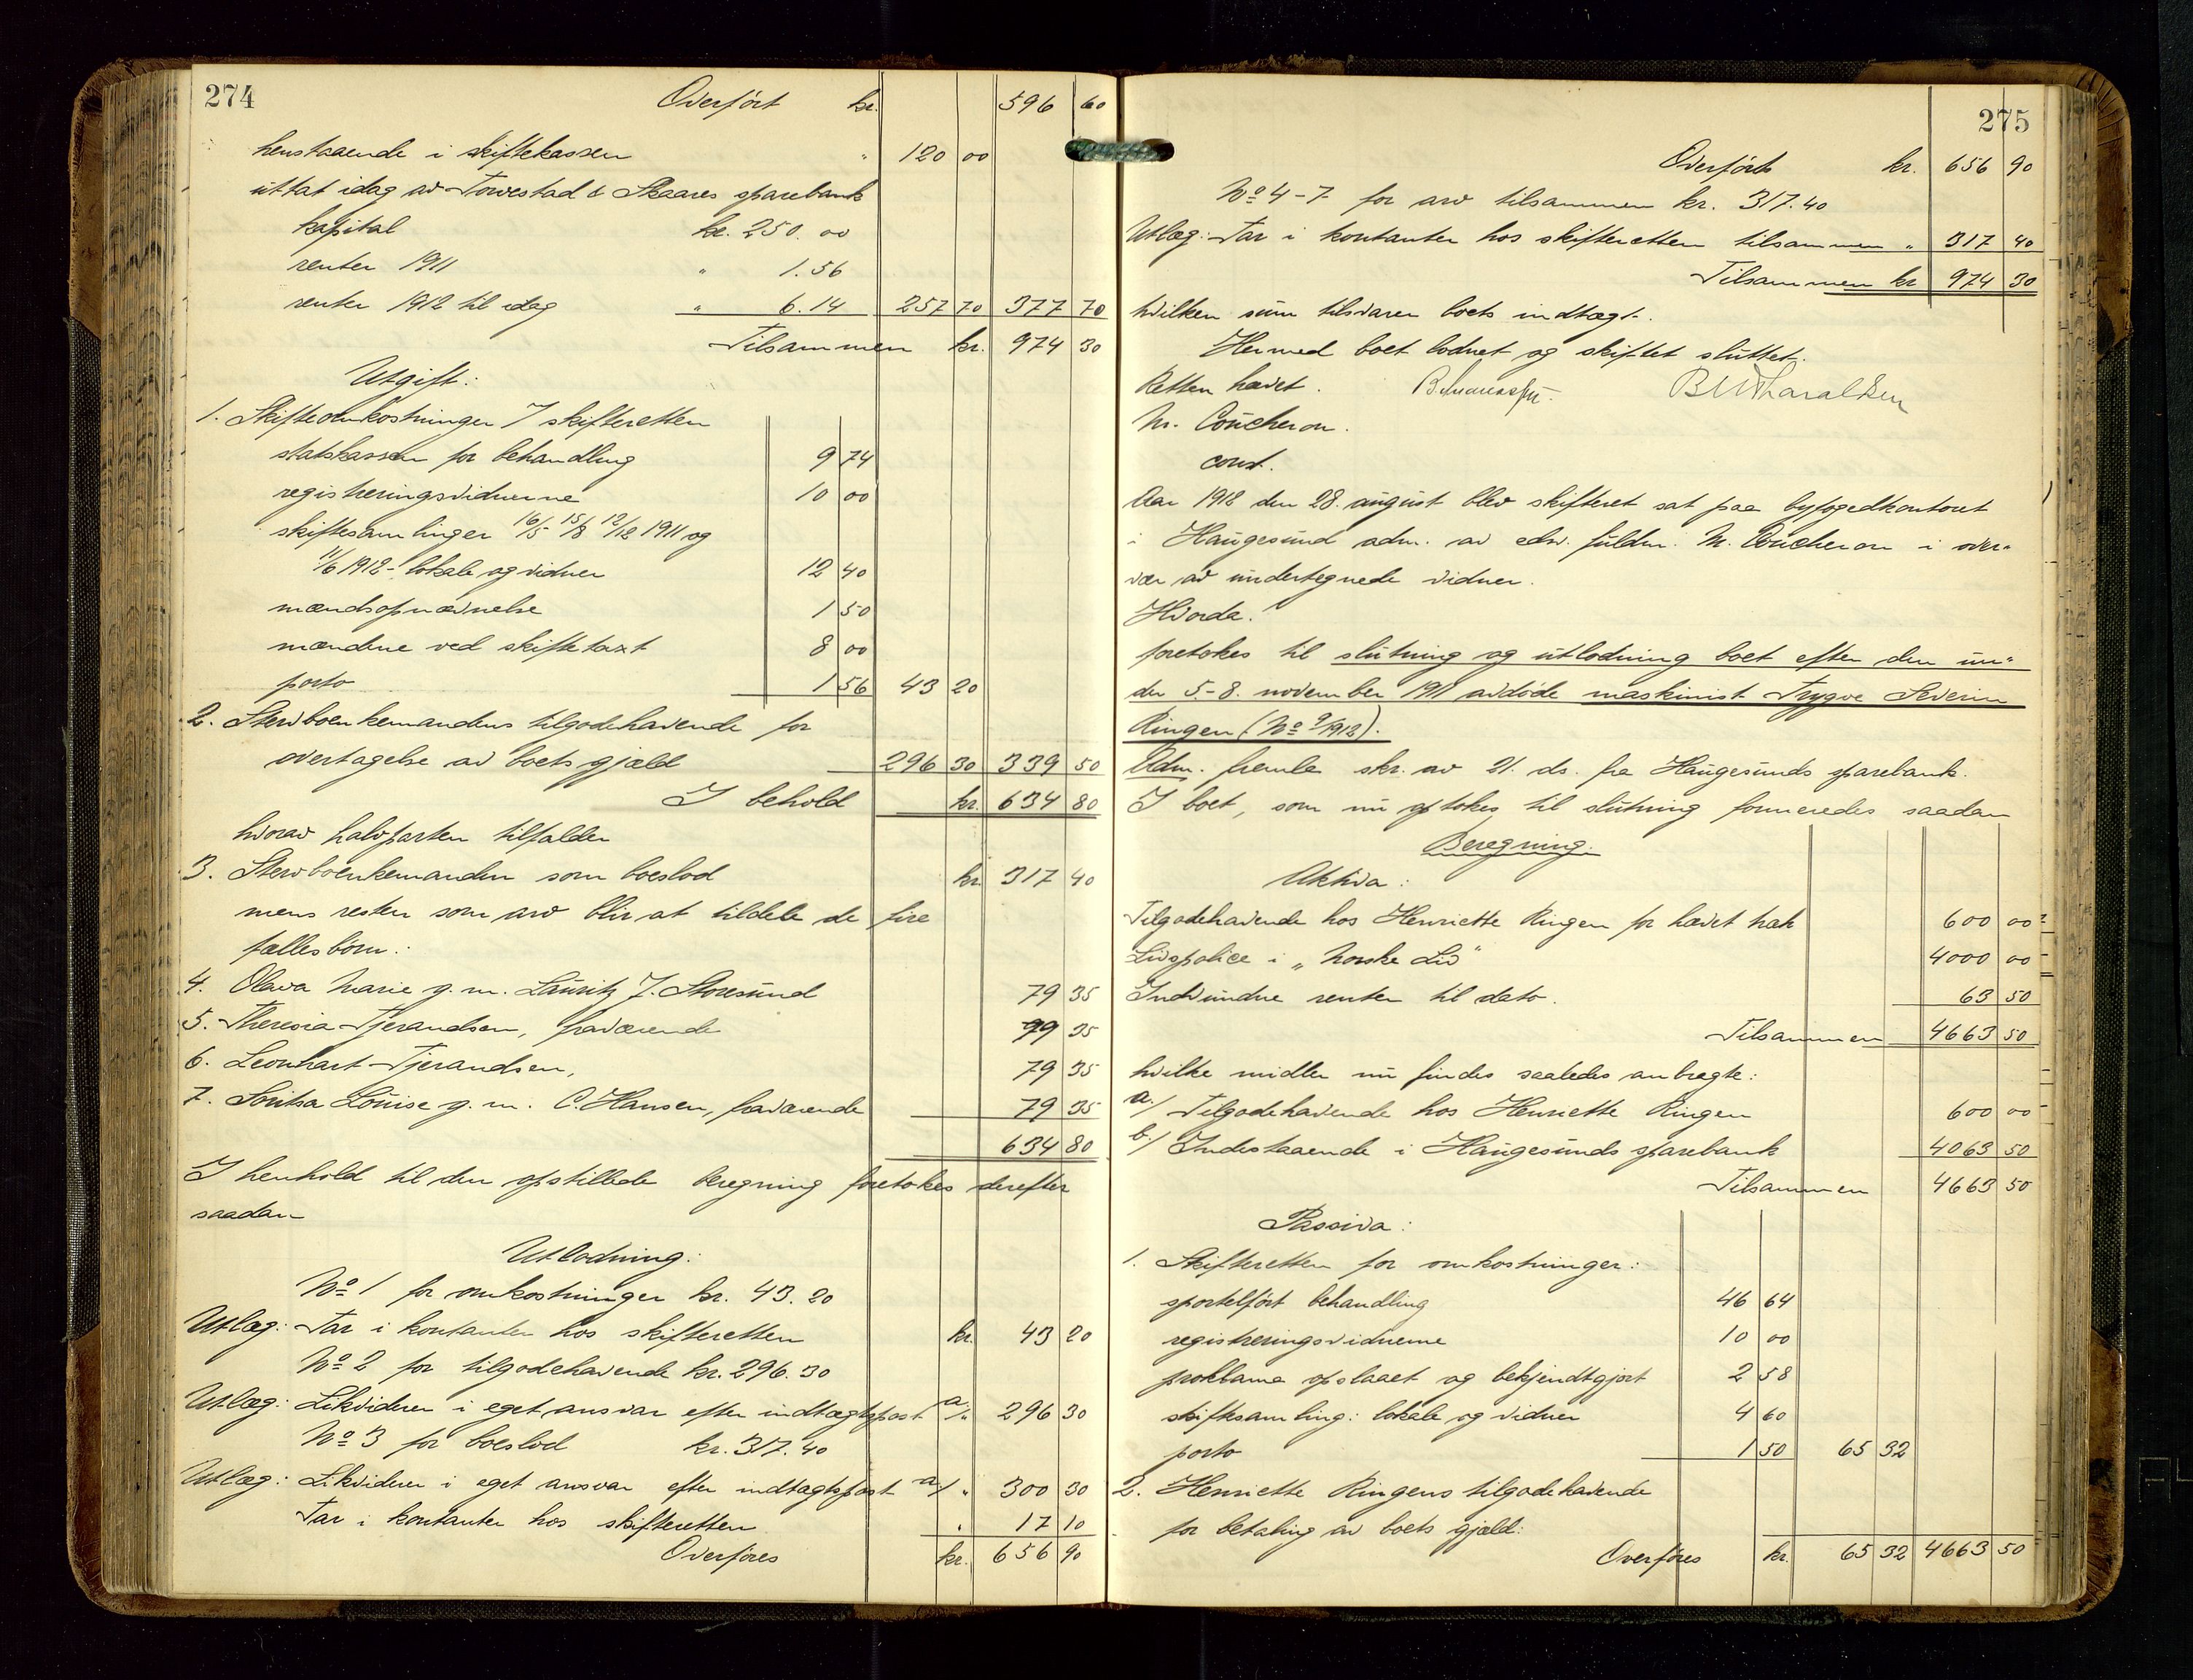 274
Overført kr. 596 60
henstaaende i skiftekassen " 120 00
uttat idag av Torvestad & Skaares sparebank
kapital kr. 250.00
renter 1911 " 1.56
renter 1912 til idag " 6.14 257 70 377 70
Tilsammen kr. 974 30
Utgift:
1. Skifteomkostninger i skifteretten
statskassen for behandling 9 74
registreringsvidnerne 10 00
skiftesamlinger 16/5 15/8 12/12 1911 og
11/6 1912 - lokale og vidner 12 40
mændsopnævnelse 1 50
mændene ved skiftetaxt 8 00
porto 1 56 43 20
2. Stervboenkemandens tilgodehavende for
overtagelse av boets gjæld 296 30 339 50
I behold kr. 634 80
hvorav halvparten tilfalder
3. Stervboenkemanden som boeslod kr 317 40
mens resten som arv blir at tildele de fire
fællesbørn:
4. Olava Marie g.m. Lauritz J. Storesund 79 35
5. Theresia Tjerandsen, fraværende 79 35
6. Leonhart Tjerandsen, 79 35
7. Louise g.m. C. Hansen, fraværende 79 35
634 80
I henhold til den opstillede beregning foretokes derefter
saadan
Utlodning:
No 1 for omkostninger kr. 43.20
Utlæg: Tar i kontanter hos skifteretten kr. 43 20
No 2 for tilgodehavende kr. 296.30
Utlæg: Likviderer i eget ansvar efter indtægtspost a/ " 296 30
No 3 for boeslod kr. 317.40
Utlæg: Likviderer i eget ansvar efter indtægtspost a/ " 300 30
Tar i kontanter hos skifteretten " 17 10
Overføres kr. 656 90
275
Overført kr. 656 90
No 4-7 for arv tilsammen kr. 317.40
Utlæg: Tar i kontanter hos skifteretten tilsammen " 317 40
Tilsammen kr 974 30
hvilken sum tilsvarer boets indtægt.
Hermed boet lodnet og skiftet sluttet.
Retten hævet. B W Tharaldsen
M. Coucheron.
const.
Aar 1912 den 28. august blev skifteret sat paa byfogedkontoret
i Haugesund adm. av edsv. fuldm. M. Coucheron i over-
vær av undertegnede vidner.
Hvorda:
foretokes til slutning og utlodning boet efter den un-
der 5-8. november 1911 avdøde maskinist Trygve Severin
Ringen (No 9/1912).
Adm. fremla skr. av 21. ds. fra Haugesunds sparebank.
I boet, som nu optokes til slutning formeredes saadan
Beregning.
Aktiva:
Tilgodehavende hos Henriette Ringen for hævet træk 600 00
Livspolice i "Norske Liv" 4000 00
Indvundne renter til dato. 63 50
Tilsammen 4663 50
hvilke midler nu findes saaledes anbragte:
a/ Tilgodehavende hos Henriette Ringen 600 00
b/ Indestaaende i Haugesunds sparebank 4063 50
Tilsammen 4663 50
Passiva:
1. Skifteretten for omkostninger:
sportelført behandling 46 64
registreringsvidnerne 10 00
proklama opslaaet og bekjendtgjort 2 58
skiftesamling: lokale og vidner 4 60
porto 1 50 65 32
2. Henriette Ringens tilgodehavende
for betaling av boets gjæld:
Overføres kr. 65 32 4663 50